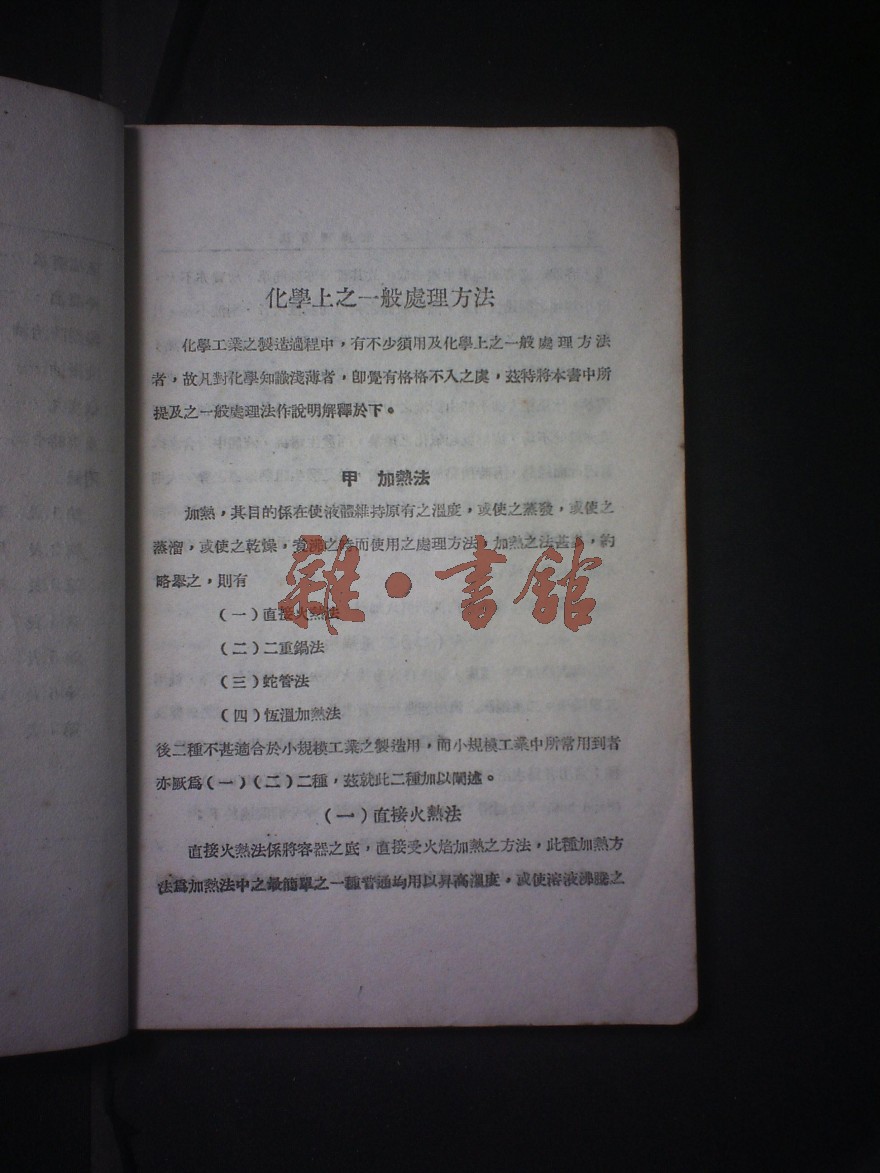 化學上之一般處理方法
化學工業之製造過程中，有不少須用及化學上之一般處理方法
者，故凡對化學知識淺薄者，卽覺有格格不入之虞，茲特將本書中所
提及之一般處理法作說明解釋於下。
甲 加熱法
加熱，其目的係在使液體維持原有之溫度，或使之蒸發，或使之
蒸溜，或使之乾燥，煑沸之時而使用之處理方法，加熱之法甚多，約
略舉之，則有
（一）直接火熱法
（二）二重鍋法
（三）蛇管法
（四）恆溫加熱法
雜·書館
後二種不甚適合於小規模工業之製造用，而小規模工業中所常用到者
亦厥爲（一）（二）二種，茲就此二種加以闡述。
（一）直接火熱法
直接火熱法係將容器之底，直接受火焰加熱之方法，此種加熱方
法爲加熱法中之最簡單之一種普通均用以昇高溫度，或使溶液沸騰之